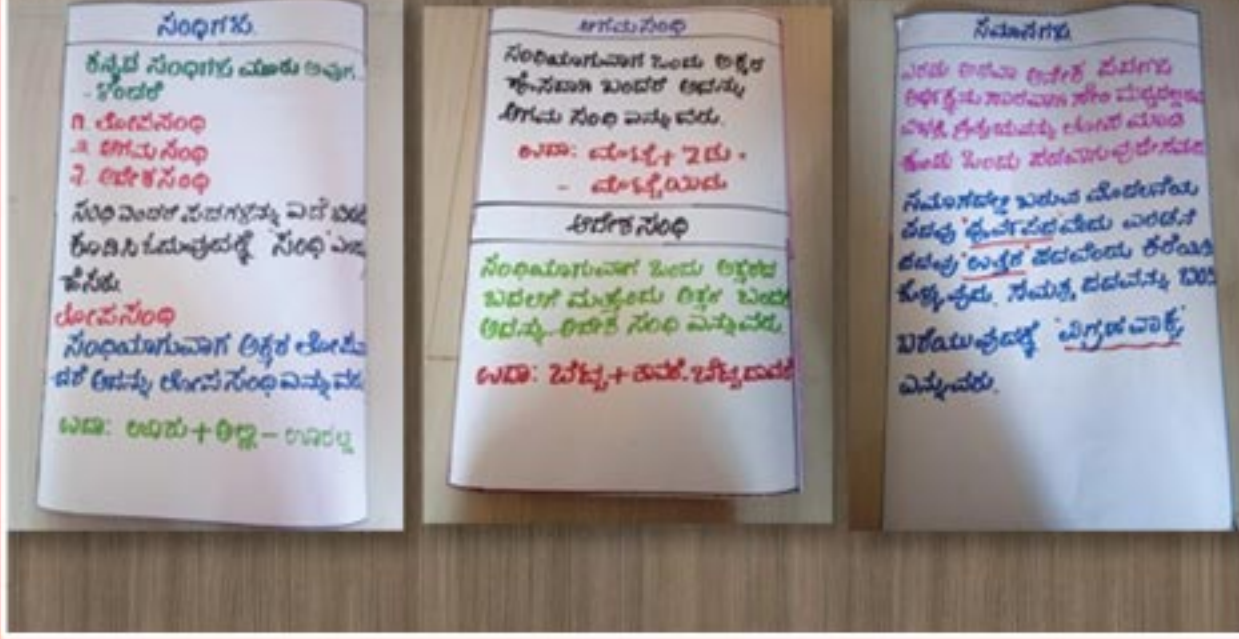 ಸಂಧಿಗಳು.
ಕನ್ನಡ ಸಂಧಿಗಳು ಮೂರು ಅವುಗ
- ಳೆಂದರೆ
೧. ಲೋಪಸಂಧಿ
೨. ಆಗಮಸಂಧಿ
೩. ಆದೇಶಸಂಧಿ
ಸಂಧಿ ಎಂದರೆ ಪದಗಳನ್ನು
ಕೂಡಿಸಿ ಓದುವುದಕ್ಕೆ 'ಸಂಧಿ' ಎಂದು
ಹೆಸರು.
ಲೋಪಸಂಧಿ
ಸಂಧಿಯಾಗುವಾಗ ಅಕ್ಷರ ಲೋಪವಾ
ದರೆ ಅದನ್ನು ಲೋಪಸಂಧಿ ಎನ್ನುವರು
ಉದಾ: ಊರು + ಅಲ್ಲಿ - ಊರಲ್ಲಿ
ಆಗಮಸಂಧಿ
ಸಂಧಿಯಾಗುವಾಗ ಒಂದು ಅಕ್ಷರ
ಹೊಸದಾಗಿ ಬಂದರೆ ಅದನ್ನು
ಆಗಮ ಸಂಧಿ ಎನ್ನುವರು.
ಉದಾ: ಮೊಟ್ಟೆ + ಇದು -
- ಮೊಟ್ಟೆಯಿದು
ಆದೇಶಸಂಧಿ
ಸಂಧಿಯಾಗುವಾಗ ಒಂದು ಅಕ್ಷರದ
ಬದಲಿಗೆ ಮತ್ತೊಂದು ಅಕ್ಷರ ಬಂದರೆ
ಅದನ್ನು ಆದೇಶ ಸಂಧಿ ಎನ್ನುವರು.
ಉದಾ: ಬೆಟ್ಟ + ತಾವರೆ - ಬೆಟ್ಟದಾವರೆ
ಸಮಾಸಗಳು
ಎರಡು ಅಥವಾ ಅನೇಕ ಪದಗಳು
ಸೇರಿ
ಲೋಪ ಮಾಡಿ
ಒಂದು ಪದವಾಗುವುದೇ
ಸಮಾಸದಲ್ಲಿ ಬರುವ ಮೊದಲನೆಯ
ಪದವು 'ಪೂರ್ವಪದ'ವೆಂದು ಎರಡನೆ
ಪದವು 'ಉತ್ತರ' ಪದವೆಂದು ಕರೆಯಿಸಿ
ಕೊಳ್ಳುವುದು. ಸಮಸ್ತ ಪದವನ್ನು ಬಿಡಿಸಿ
ಬರೆಯುವುದಕ್ಕೆ 'ವಿಗ್ರಹವಾಕ್ಯ'
ಎನ್ನುವರು.